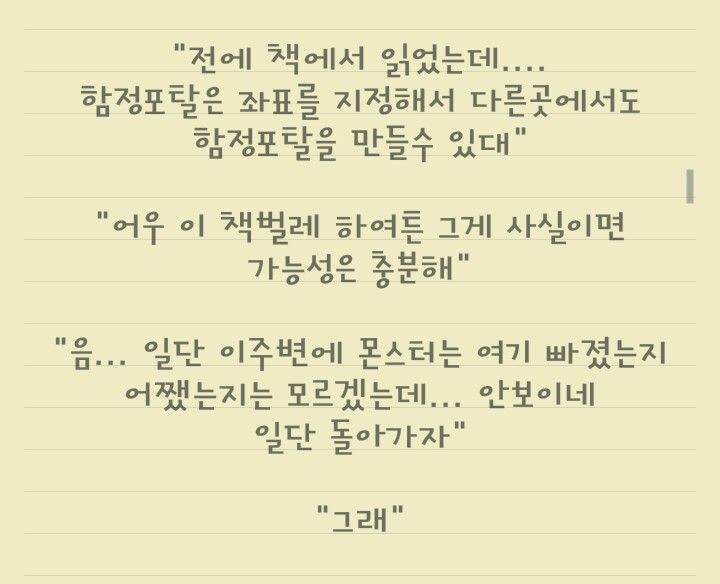 "전에 책에서 읽었는데....
함정포탈은 좌표를 지정해서 다른곳에서도
함정포탈을 만들수 있대"
"어우 이 책벌레 하여튼 그게 사실이면
가능성은 충분해"
"음... 일단 이주변에 몬스터는 여기 빠졌는지
어쨌는지는 모르겠는데... 안보이네
일단 돌아가자"
"그래"